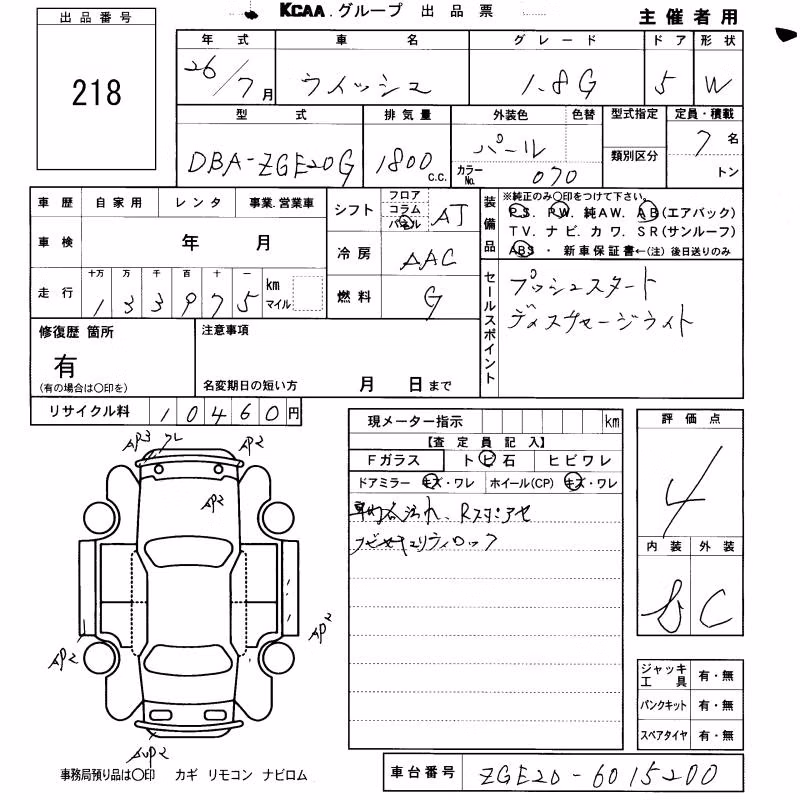 KCAA.グループ 出品票
主催者用
出品番号
218
年式 車名 グレード ドア 形状
26/7月 ウイッシュ 1.8G 5 W
型式 排気量 外装色 色替 型式指定 定員・積載
DBA-ZGE20G 1800c.c. パール 類別区分 7名
カラーNo. 070 トン
車歴 自家用 レンタ 事業.営業車
車検 年 月
走行 十万 万 千 百 十 一 km マイル
133975
シフト フロア コラム パネル AT
冷房 AAC
燃料 G
装備品 ※純正のみ○印をつけて下さい。
P.S. P.W. 純A.W. A.B(エアバック)
T.V. ナビ. カワ. S.R(サンルーフ)
ABS ・ 新車保証書←(注) 後日送りのみ
セールスポイント
プッシュスタート
ディスチャージライト
修復歴 箇所
有
(有の場合は○印を)
注意事項
名変期日の短い方 月 日まで
リサイクル料 10460円
現メーター指示 km
【査定員記入】
Fガラス トビ石 ヒビワレ
ドアミラー キズ・ワレ ホイール(CP) キズ・ワレ
ナビセキュリティロック
評価点
4
内装 外装
C
AP3 フレ AP2
AP2
AP2 AP2
AUP2
ジャッキ工具 有・無
パンクキット 有・無
スペアタイヤ 有・無
事務局預り品は○印 カギ リモコン ナビロム
車台番号 ZGE20-6015200